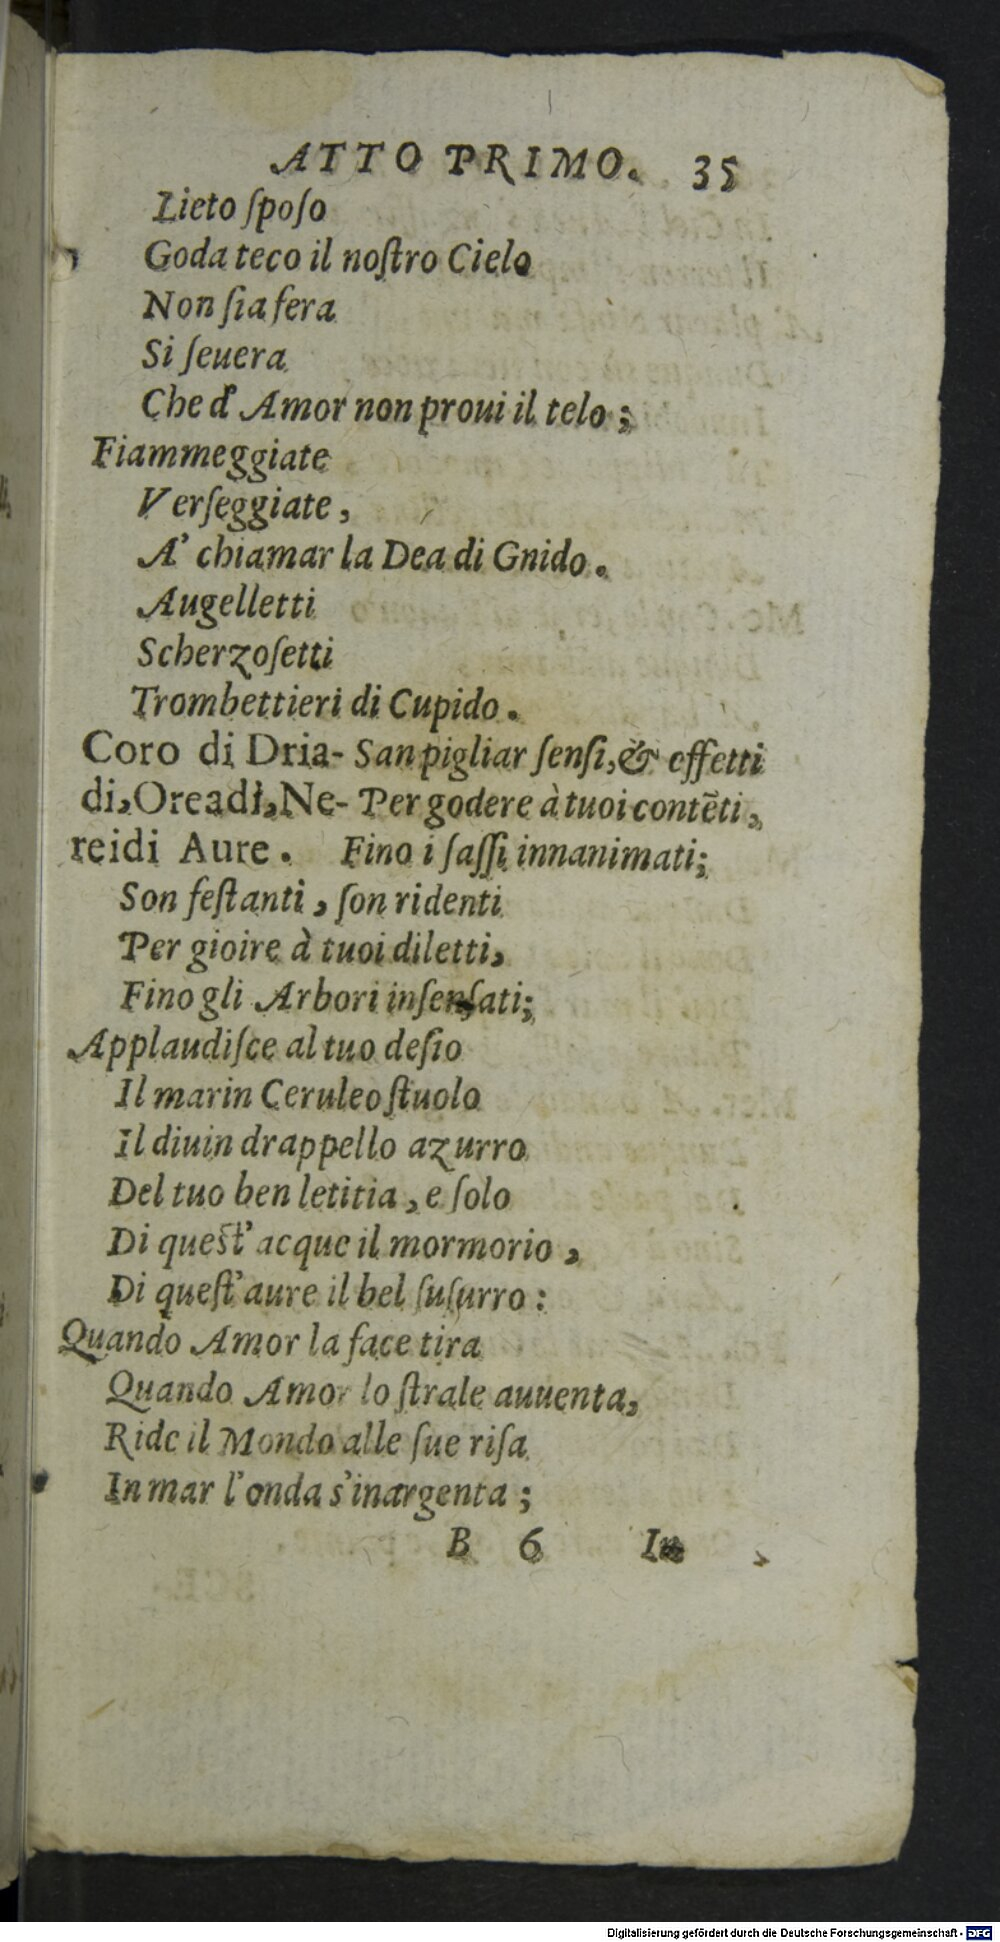 ATTO PRIMO. 35
Lieto ſpoſo
Goda teco il noſtro Cielo
Non ſia fera
Si ſeuera
Che d' Amor non proui il telo;
Fiammeggiate
Verſeggiate,
A' chiamar la Dea di Gnido.
Augelletti
Scherzoſetti
Trombettieri di Cupido.
Coro di Dria- San pigliar ſenſi, & effetti
di, Oreadi, Ne- Per godere à tuoi contẽti,
reidi Aure. Fino i ſaſſi innanimati;
Son feſtanti, ſon ridenti
Per gioire à tuoi diletti,
Fino gli Arbori inſenſati;
Applaudiſce al tuo deſio
Il marin Ceruleo ſtuolo
Il diuin drappello azurro
Del tuo ben letitia, e ſolo
Di queſt' acque il mormorio,
Di queſt' aure il bel ſuſurro:
Quando Amor la face tira
Quando Amor lo ſtrale auuenta,
Ride il Mondo alle ſue riſa
In mar l'onda s'inargenta;
B 6 In
Digitalisierung gefördert durch die Deutsche Forschungsgemeinschaft - DFG